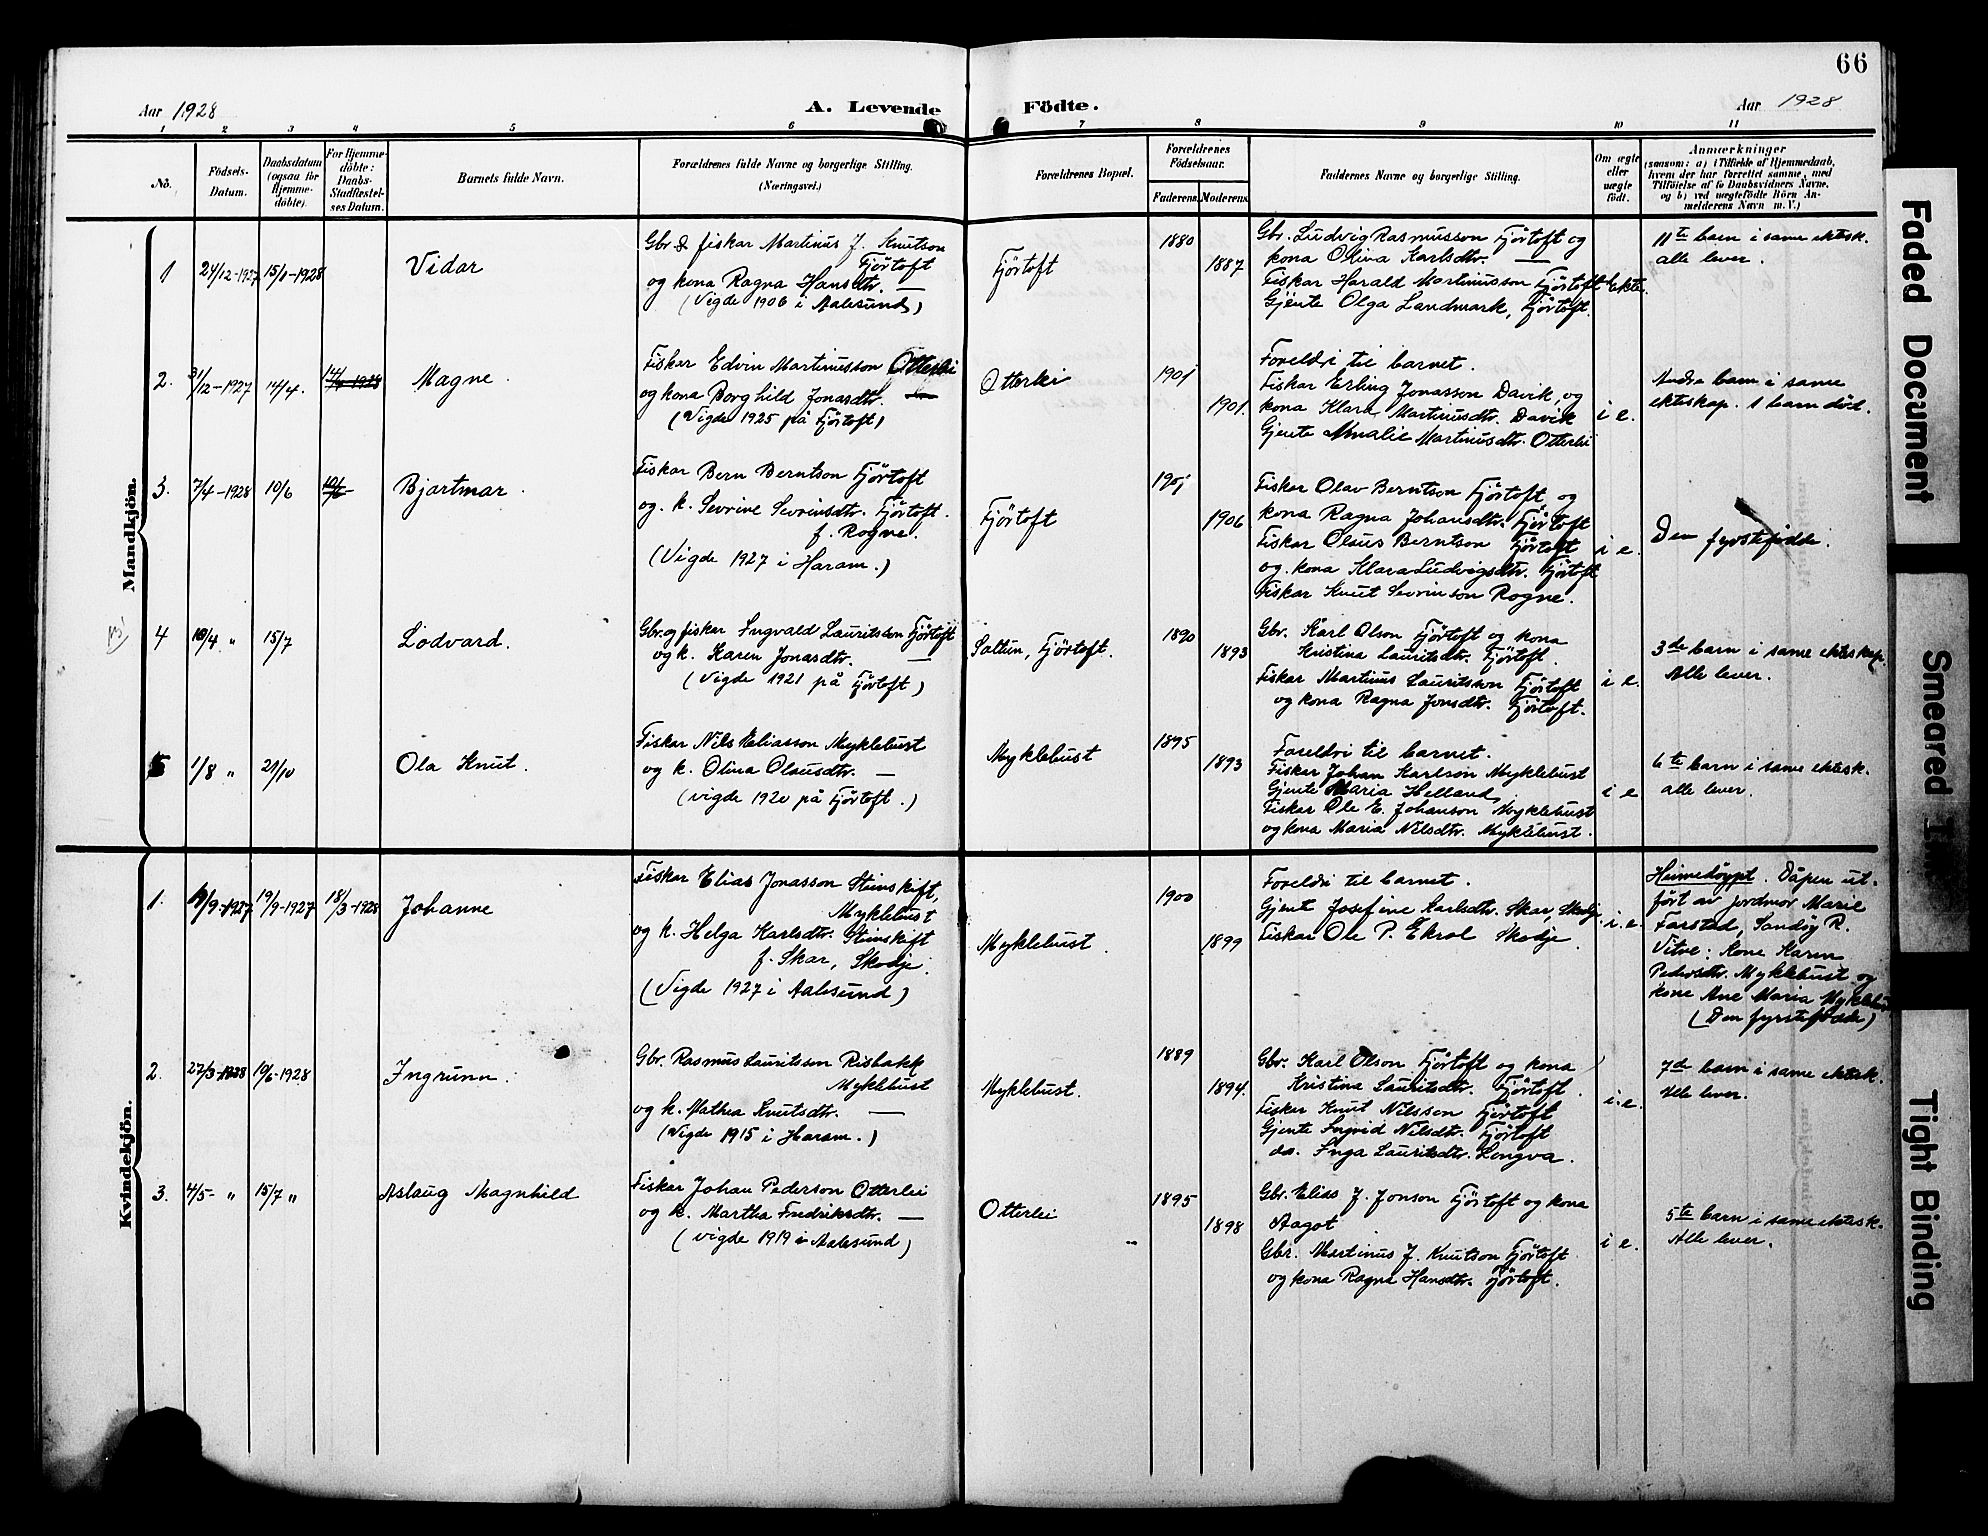 66
Aar 1928
A. Levende Födte.
Aar 1928
1 2 3 4 5 6 7 8 9 10 11
No.
Födsels-
Datum.
Daabsdatum
(ogsaa for
Hjemme-
döbte).
For Hjemme-
döbte:
Daabs-
Stadfæstel-
ses Datum.
Barnets fulde Navn.
Forældrenes fulde Navne og borgerlige Stilling.
(Næringsvei.)
Forældrenes Bopæl.
Forældrenes
Födselsaar.
Faderens. Moderens.
Faddernes Navne og borgerlige Stilling.
Om ægte
eller
uægte
födt.
Anmærkninger
(saasom: a) i Tilfælde af Hjemmedaab,
hvem der har forrettet samme, med
Tilföielse af to Daabsvidners Navne.
og b) ved uægtefödte Börn An-
melderens Navn m. V.)
Mandkjön.
1
24/12-1927
15/1-1928
Vidar
Gbr & fiskar Martinus J. Knutson
Fjörtoft
og kona Ragna Hansdtr. —
(Vigde 1906 i Aalesund)
Fjörtoft
1880
1887
Gbr. Ludvig Rasmusson Fjörtoft og
kona Olina Karlsdtr. —
Fiskar Harald Martinusson Fjörtoft
Gjente Olga Landmark, Fjörtoft.
ekte.
11te barn i same ektesk.
alle lever.
2.
31/12-1927
14/4.
Magne.
Fiskar Edvin Martinusson Otterlei
og kona Borghild Jonasdtr.
(Vigde 1925 på Fjörtoft)
Otterlei
1901
1901.
Foreldri til barnet.
Fiskar Erling Jonasson Davik, og
kona Klara Martinusdtr. Davik
Gjente Amalie Martinusdtr. Otterlei
i e.
Andre barn i same
ekteskap. 1 barn död.
3.
7/4-1928
10/6
10/6-
Bjartmar.
Fiskar Bern Berntson Fjörtoft
og. k. Sevrine Sevrinsdtr. Fjörtoft.
f. Rogne.
(Vigde 1927 i Haram.)
Fjörtoft
1901
1906
Fiskar Olav Berntson Fjörtoft, og
kona Ragna Johansdtr. Fjörtoft
Fiskar Olaus Berntson Fjörtoft
og. kona Klara Ludvigsdtr. Fjörtoft
Fiskar Knut Sevrinson Rogne.
i e.
Den fyrstefödde.
4
/4 "
15/7
Lodvard.
Gbr. og fiskar Ingvald Lauritsson Fjörtoft
og k. Karen Jonasdtr. —
(Vigde 1921 på Fjörtoft)
Saltun, Fjörtoft.
1890
1893
Gbr. Karl Olson Fjörtoft og kona
Kristina Lauritsdtr. Fjörtoft.
Fiskar Martinus Lauritsson Fjörtoft
og kona Ragna Jonsdtr. Fjörtoft.
i e.
3de barn i same ekteskap.
Alle lever.
5
1/8 "
21/10
Ola Knut.
Fiskar Nils Eliasson Myklebust
og k. Olina Olausdtr. —
(vigde 1920 på Fjörtoft.)
Myklebust
1895
1893
Foreldri til barnet.
Fiskar Johan Karlson Myklebust
Gjente Maria Helland,
Fiskar Ole E. Johanson Myklebust
og kona Maria Nilsdtr. Myklebust.
i e
6te barn i same ektesk.
alle lever.
Kvindekjön.
1.
/9-1927
19/9-1927
18/3-1928
Johanne
Fiskar Elias Jonasson Steinskift,
Myklebust
og k. Helga Karlsdtr. Steinskift
f. Skar, Skodje.
(Vigde 1927 i Aalesund)
Myklebust.
1900
1899
Foreldri til barnet.
Gjente Josefine Karlsdtr. Skar, Skodje
Fiskar Ole P. Ekrol Skodje.
i. e.
Heimedöypt. Dåpen ut-
fört av jordmor Marie
Farstad, Sandöy R.
Vitne: Kone Karen
Pedersdtr. Myklebust og
kone Ane Maria Myklebust
(Den fyrstefödde)
2.
27/3-1928
10/6-1928
Ingrunn.
Gbr. Rasmus Lauritsson Risbakk
Myklebust
og k. Mathea Knutsdtr. —
(Vigde 1915 i Haram.)
Myklebust.
1889
1894.
Gbr. Karl Olson Fjörtoft og kona
Kristina Lauritsdtr. Fjörtoft.
Fiskar Knut Nilsson Fjörtoft
Gjente Ingrid Nilsdtr. Fjörtoft
do. Inga Lauritsdtr. Longva.
i. e.
7de barn i same ektesk.
Alle lever.
3.
4/5- "
15/7 "
Aslaug Magnhild
Fiskar Johan Pederson Otterlei
og k. Martha Fredriksdtr. —
(vigde 1919 i Aalesund)
Otterlei
1895
1898
Gbr. Elias J. Jonson Fjörtoft og kona
Aagot
Gbr. Martinus J. Knutson Fjörtoft
og kona Ragna Hansdtr. Fjörtoft.
i e.
5te barn i same ektesk.
Alle lever.
Faded Document
Smeared
Tight Binding